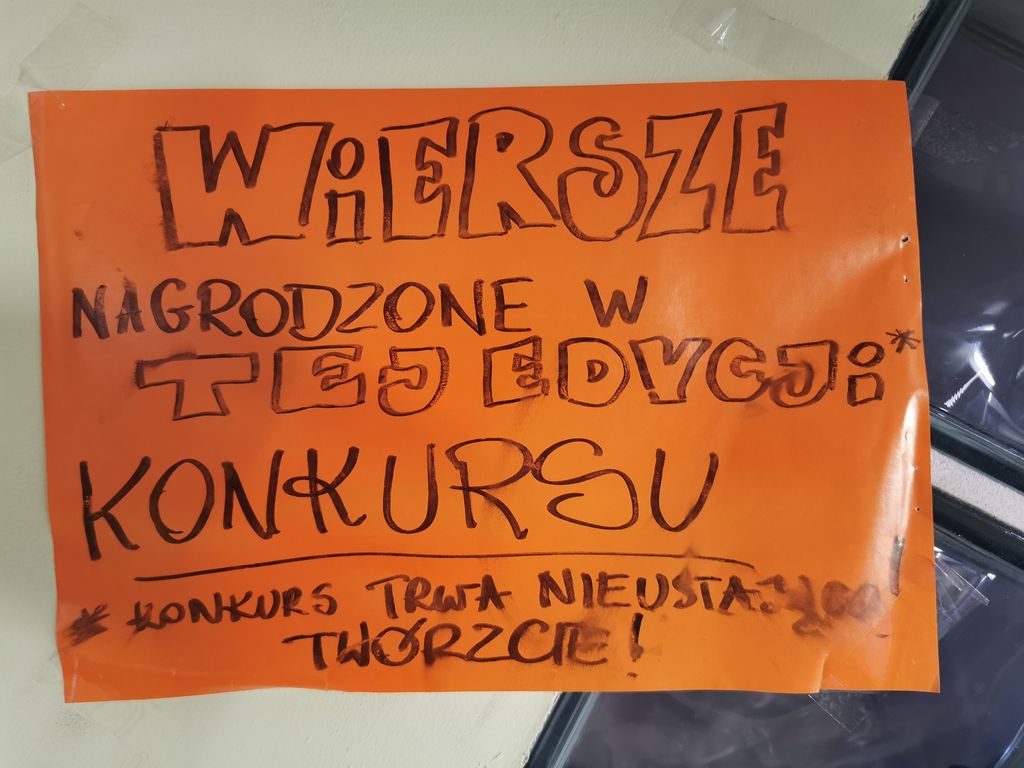 WiERSZE
NAGRODZONE W
TEJ EDYCJi*
KONKURSU
* KONKURS TRWA
TWÓRZCIE!